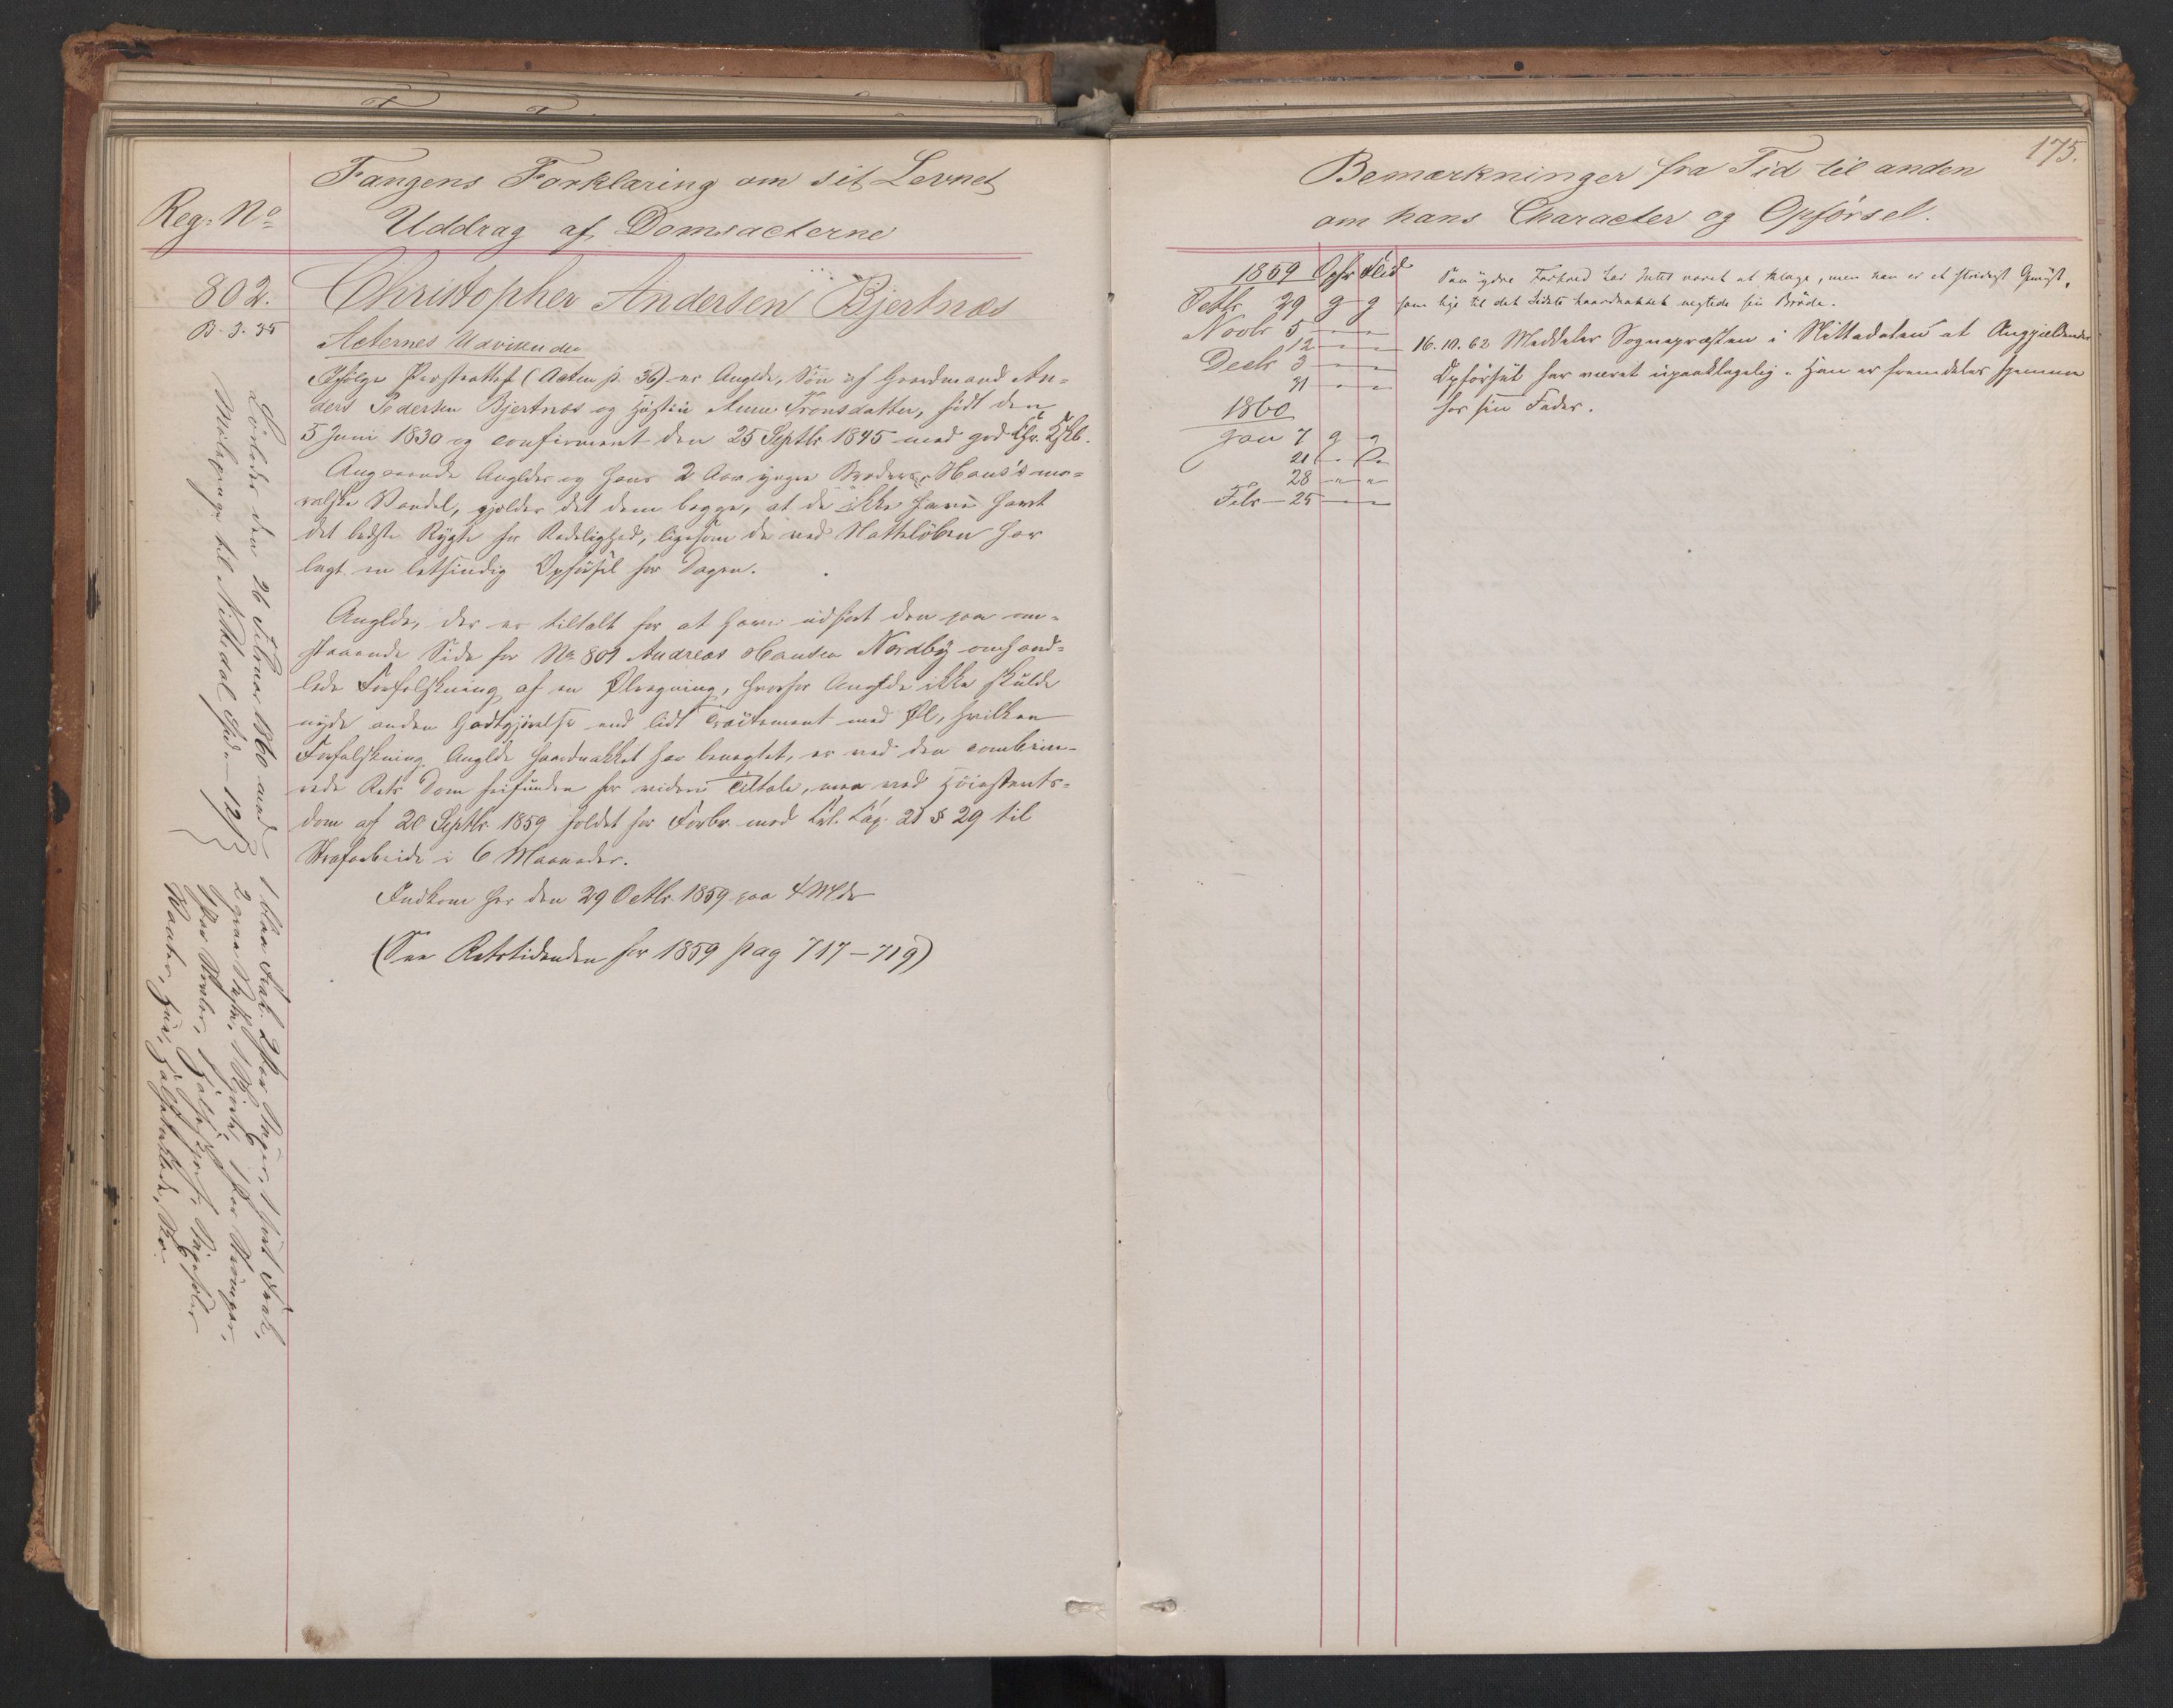 Reg: No
Fangens Forklaring om sit Levnet
Uddrag af Domsacterne
802.
B. 3. 35
Christopher Andersen Bjertnæs
Acternes Udvisende
Ifølge Præsteattest (Acten p. 36) er Anglde, Søn af Gaardmand An-
ders Pedersen Bjertnæs og Hustru Anne Tronsdatter, født den
5 Juni 1830 og confirmeret den 25 Septbr 1845 med god Chr. Kskb.
Angaaende Angldes og hans 2 Aar yngre Broder Hans's mo-
ralske Vandel, gjelder det dem begge, at de ikke have havt
det bedste Rygte for Redelighed, ligesom de ved Natteløben har
lagt en letsindig Opførsel for Dagen.
Anglde, der er tiltalt for at have udført den paa om-
staaende Side for No 801 Andreas Hansen Nordby omhand-
lede Forfalskning af en Ølregning, hvorfor Anglde ikke skulde
nyde anden Godtgjørelse end lidt Tractement med Øl, hvilken
Forfalskning Anglde haardnakket har benegtet, er ved den combine-
rede Rets Dom frifunden for videre Tiltale, men ved Høiesterets-
dom af 20 Septbr 1859 holdet for Forbr. mod Crl. Cap. 21 § 29 til
Strafarbeide i 6 Maaneder.
Indkom her den 29 Octbr. 1859 paa 4 Mdr
(See Retstidenden for 1859 pag 717-719)
Løslades den 26 Februar 1860 med
Milepenge til Nittedal
1 blaa Frak. 2 Par Buxer, 1 sort Frak,
2 graa Veste, 1 Skjorte, 1 Par Strømper,
1 Par Støvler, 1
175.
Bemærkninger fra Tid til anden
om hans Character og Opførsel.
1859 Opfr Flid
Octbr 29 g g
Novbr 5 " "
12 " "
Decbr 3 " "
31 " "
1860
Jan 7 g g
21
28 " "
Febr - 25 " "
Paa ydre Forhold har Intet været at klage, men han er et stridigt Gemyt,
som lige til det Sidste haardnakket negtede sin Brøde.
16.10.62 Meddeler Sognepræsten i Nittedalen at Angjældendes
Opførsel har været upaaklagelig. Han er fremdeles hjemme
hos sin Fader.